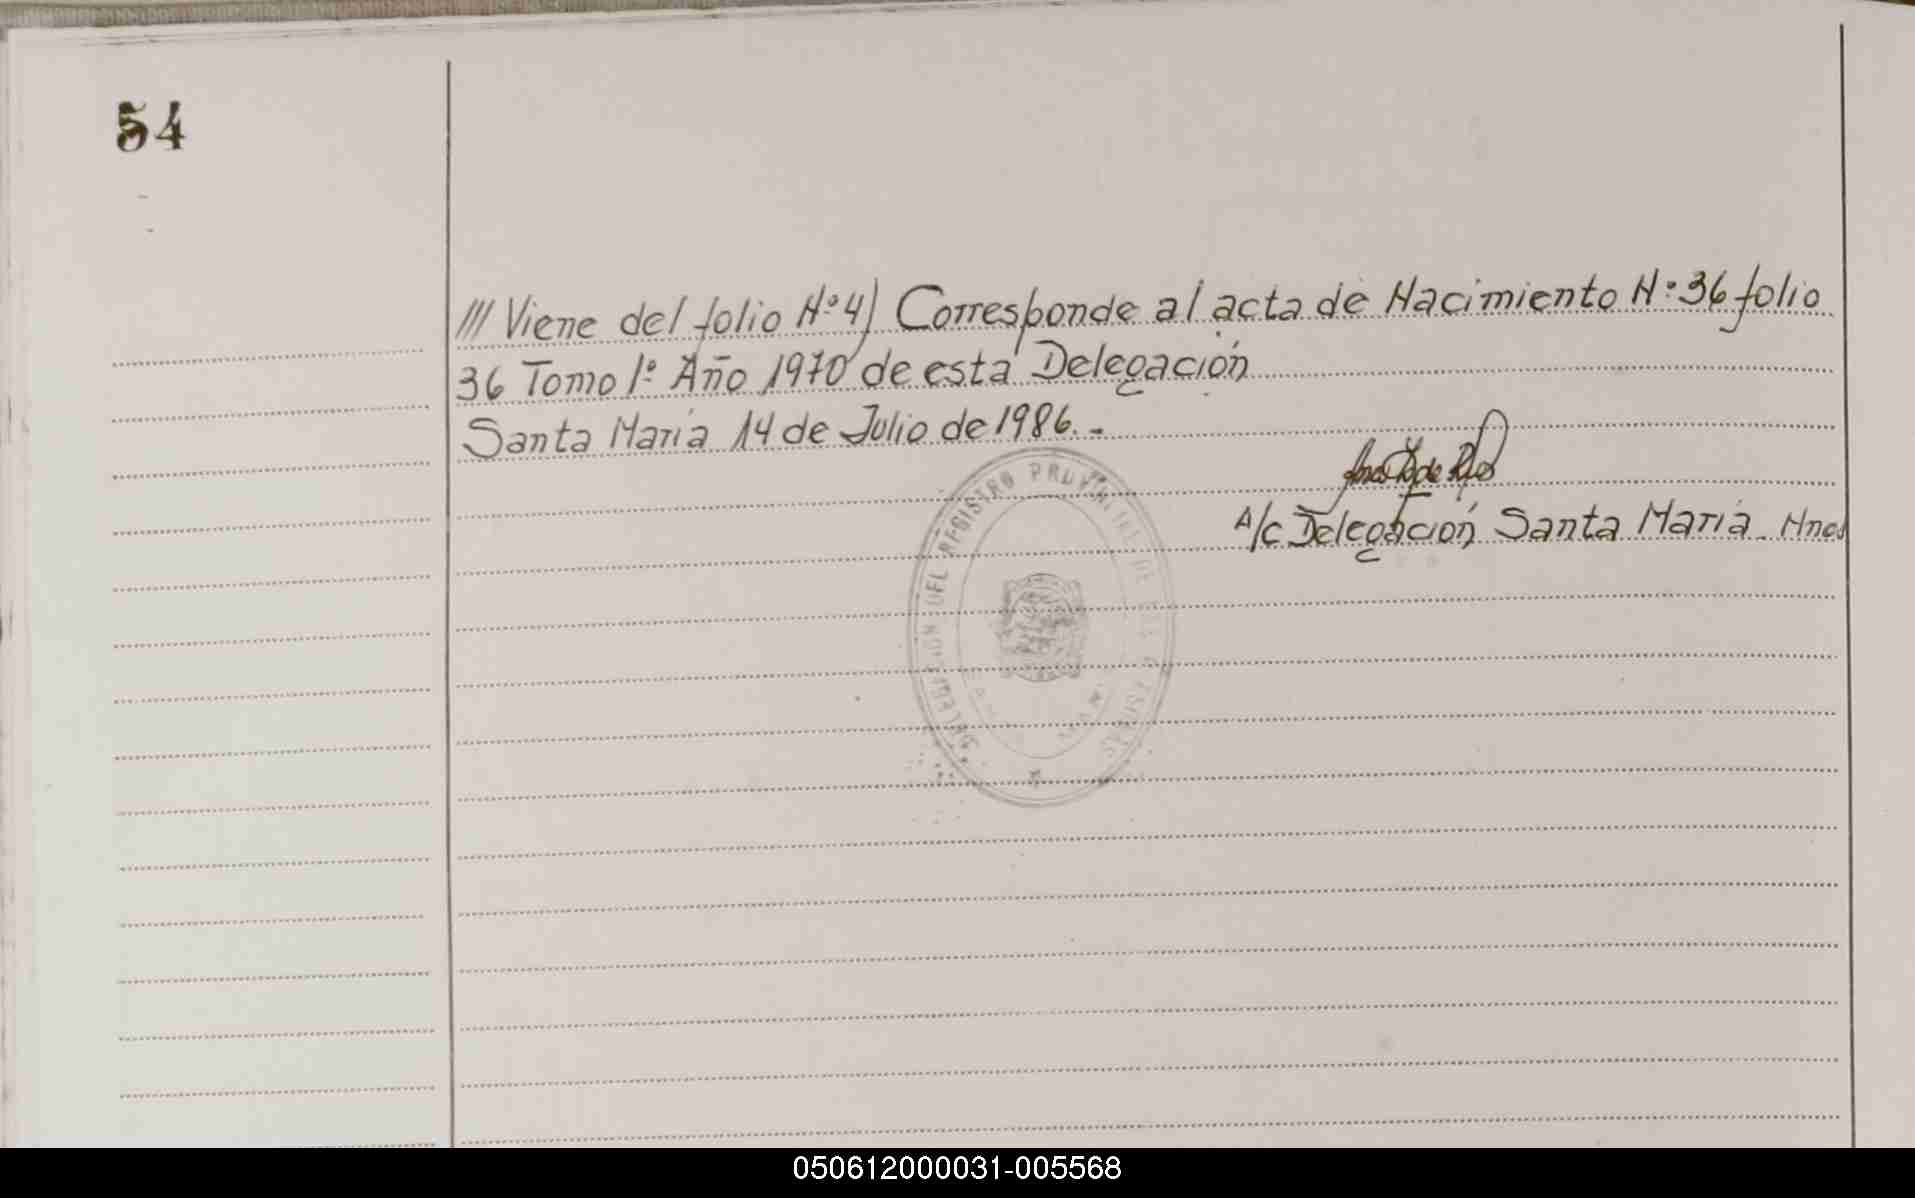 54
/// Viene del folio Nº 4) Corresponde al acta de Nacimiento Nº 36 folio
36 Tomo 1º Año 1970 de esta Delegación
Santa María 14 de Julio de 1986.-
DELEGACION DEL REGISTRO PROVINCIAL DE LAS PERSONAS
A/C Delegación Santa María. Mnes
050612000031-005568